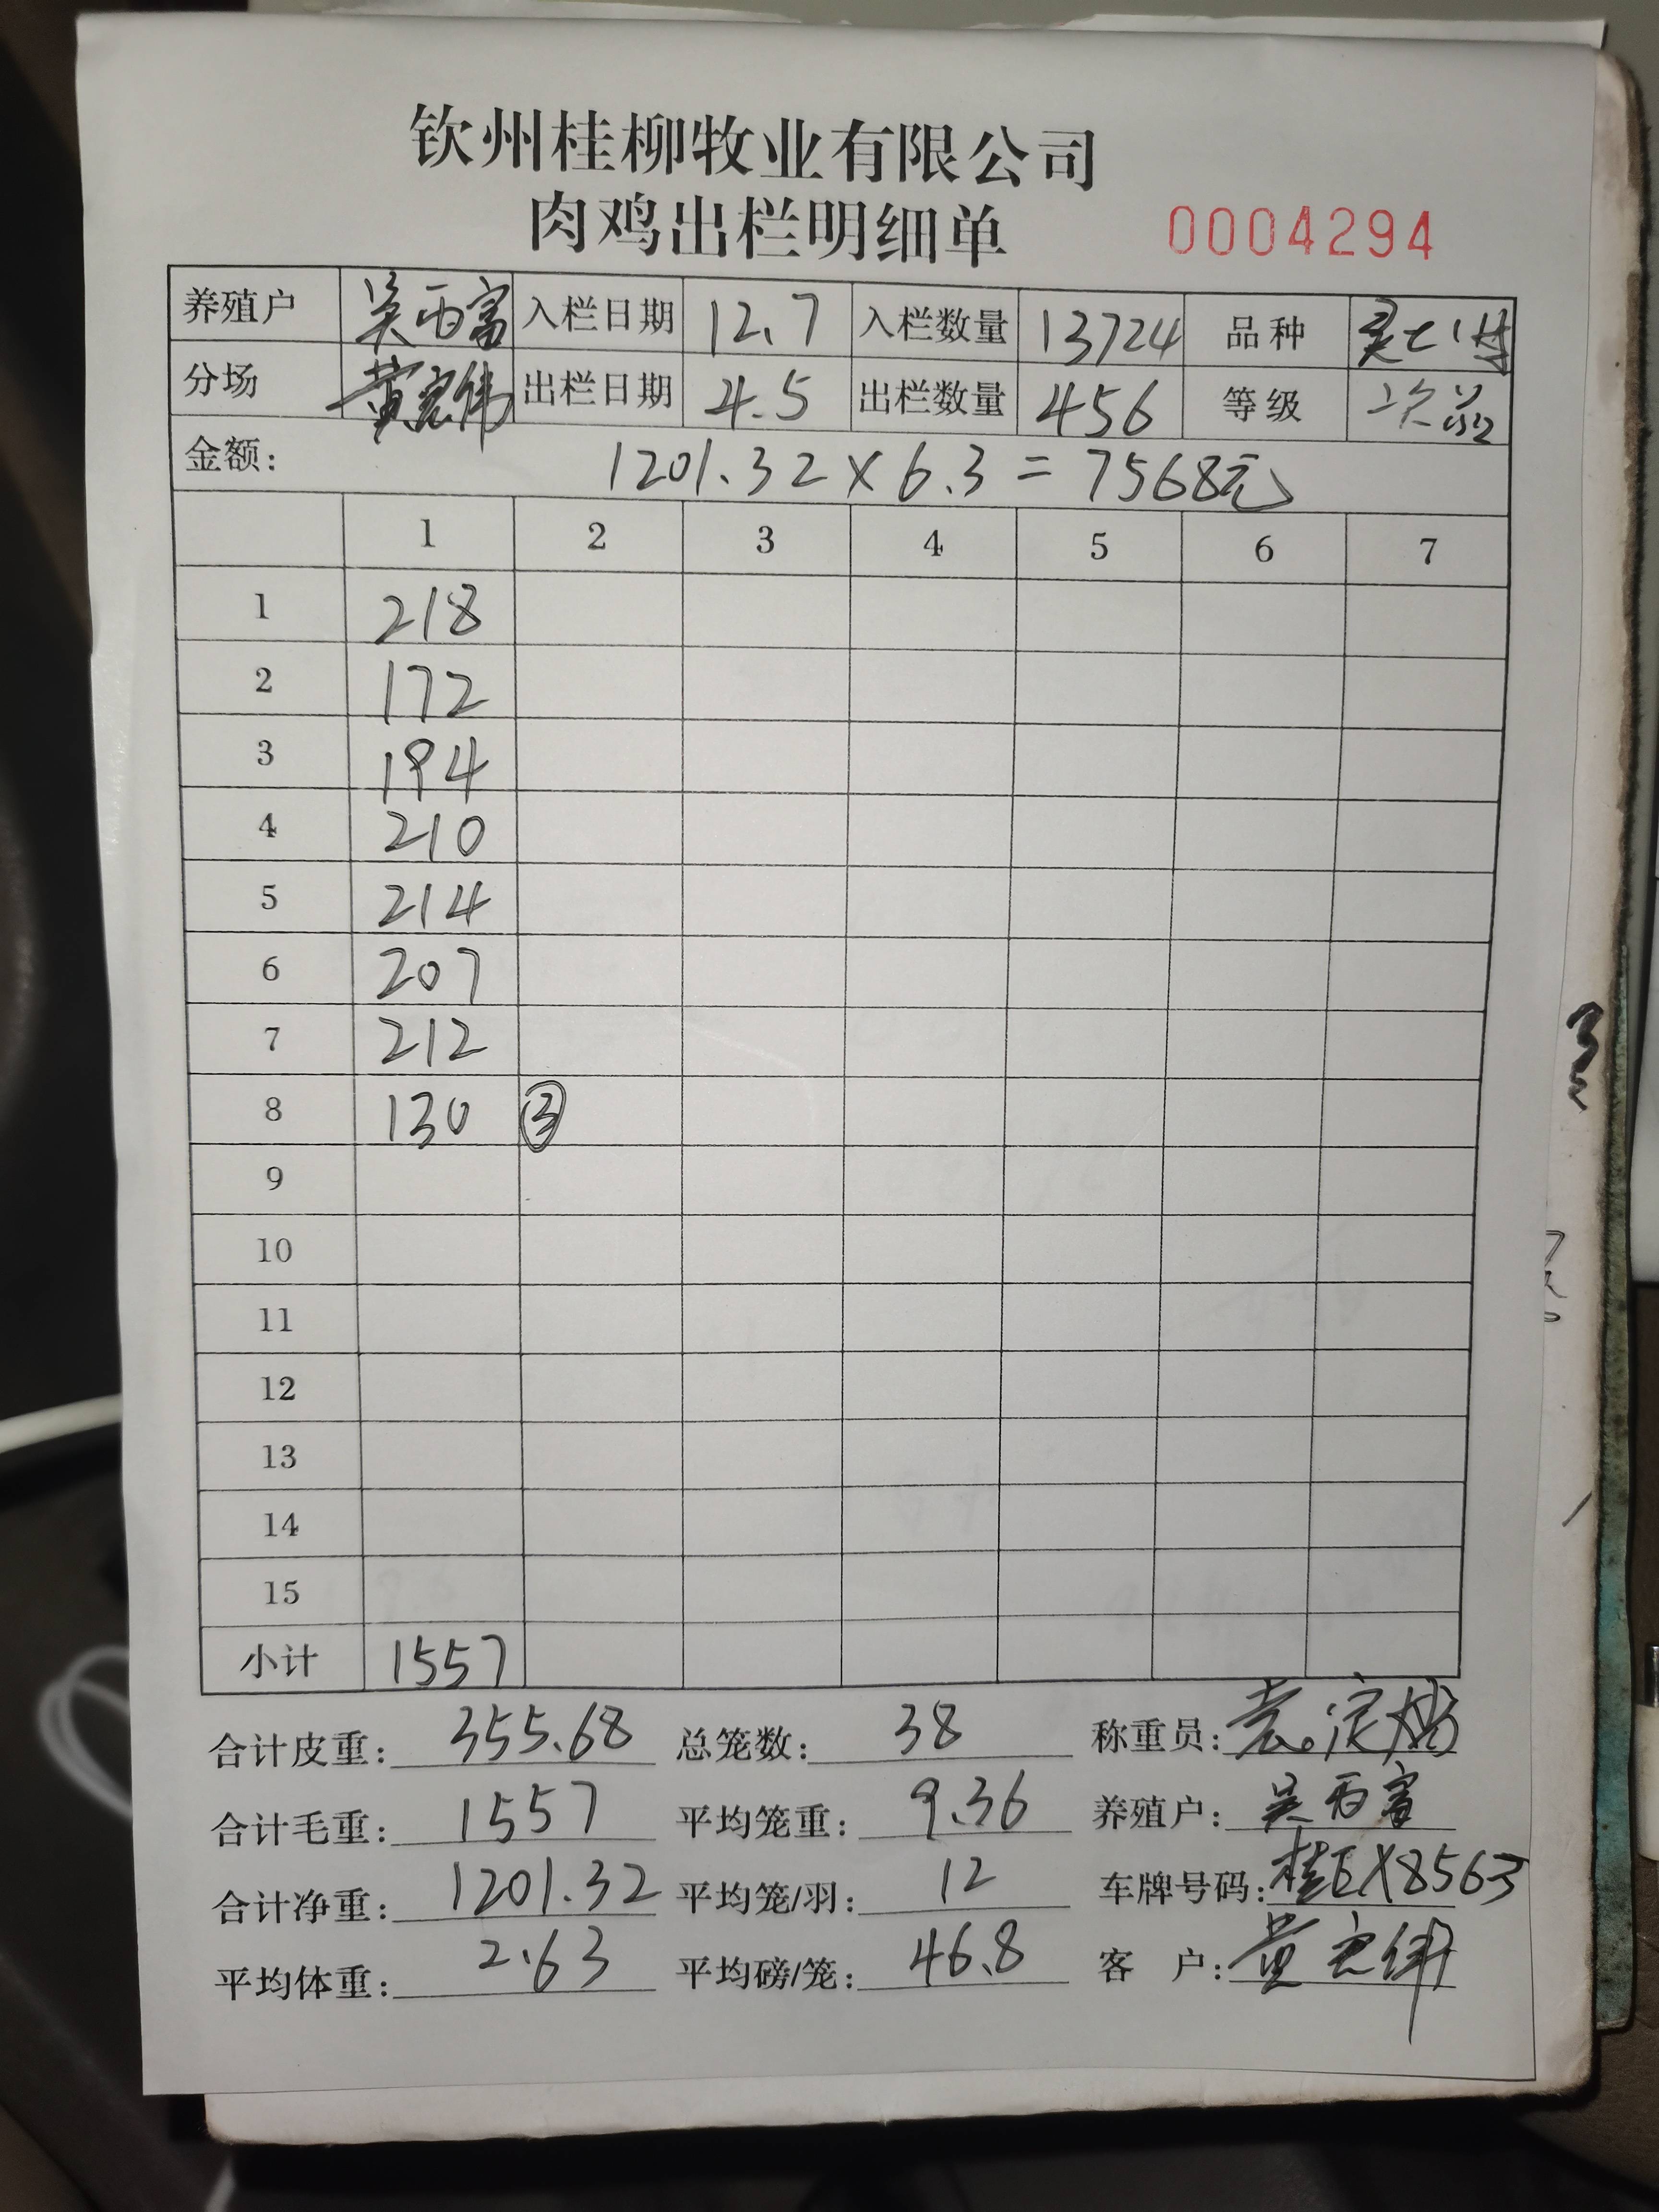 钦州桂柳牧业有限公司
肉鸡出栏明细单 0004294
养殖户 吴西富 入栏日期 12.7 入栏数量 13724 品种
分场 黄宏伟 出栏日期 4.5 出栏数量 456 等级 次品
金额: 1201.32×6.3=7568元
1 2 3 4 5 6 7
1 218
2 172
3 194
4 210
5 214
6 207
7 212
8 130 ③
9
10
11
12
13
14
15
小计 1557
合计皮重: 355.68 总笼数: 38 称重员:
合计毛重: 1557 平均笼重: 9.36 养殖户: 吴西富
合计净重: 1201.32 平均笼/羽: 12 车牌号码: 桂EX8563
平均体重: 2.63 平均磅/笼: 46.8 客 户: 黄宏伟